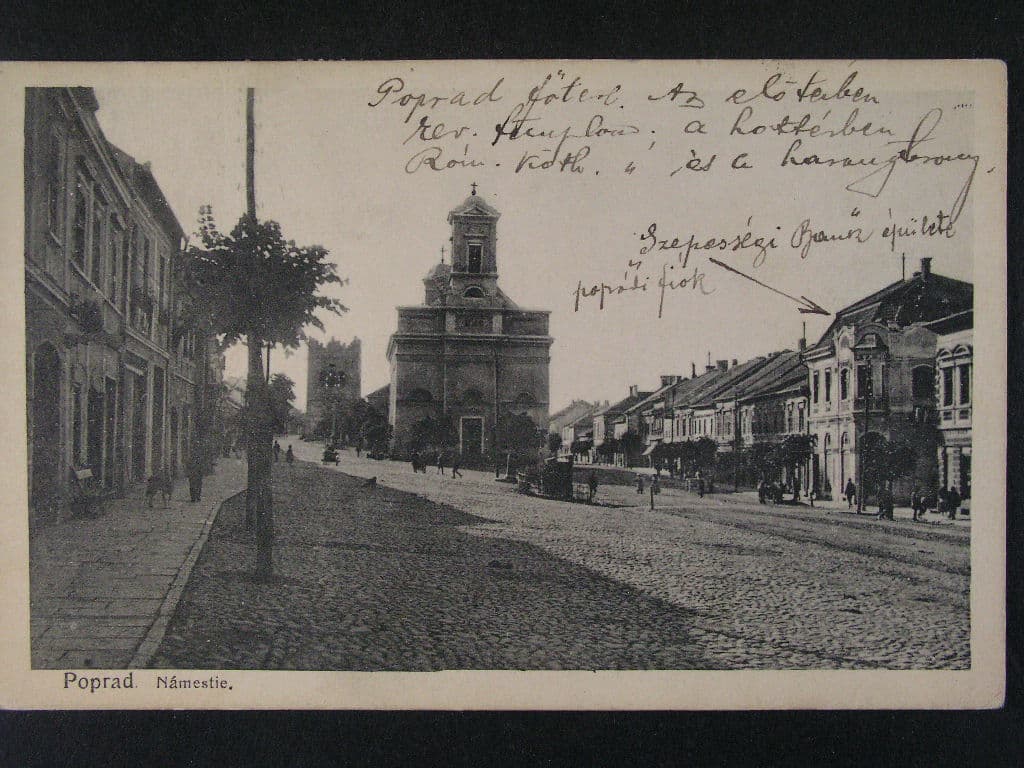 Poprad főtere. Az előtérben
ev. templom. a háttérben
Róm. kath. " és a harangtorony.
Szepességi Bank épülete
poprádi fiók
Poprad. Námestie.